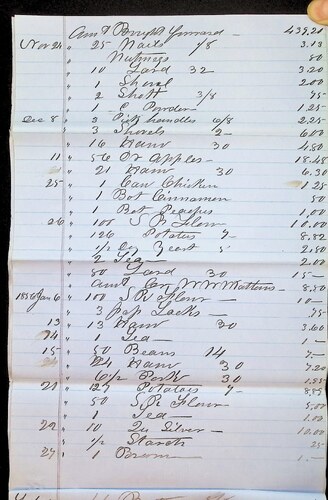 Amt Brought Forward — 439.21
Nov 24 " 25 Nails 1/8 3.13
" Nutmegs 50
" 10 Lard 32 3.20
" 1 Shovel 2.00
" 2 Shott 3/8 75
" 1 C Powder — 1.25
Dec 8 " 3 Pick handles 6/8 2.25
" 3 Shovels 2 — 6.00
" 16 Ham 30 4.80
11 " 56 Or Apples — 18.48
" 21 Ham 30 6.30
25 " 1 Can Chicken 1.25
" 1 Bot Cinnamon 50
" 1 Bot Peaches 1.00
26 " 100 S R Flour — 10.00
" 126 Potatos 7 8.82
" 1/2 Yeast 5 2.50
" 2 Tea — 2.00
" 50 Lard 30 15 —
" Amt W W Mathews — 8.50
1856 Jan 6 " 100 S R Flour — 10 —
" 3 pap Tacks — 75
13 " 13 Ham 30 3.60
14 " 1 Tea — 1 —
15 " 50 Beans 14 7 —
21 " 24 Ham 30 7.20
" 6 1/2 Pork 30 1.95
21 " 127 Potatoes 7 8.85
" 50 S R Flour 5.00
" 1 Tea — 1.00
22 " 10 Qu Silver — 10.00
" 1/2 Starch 25
27 " 1 Broom 1. —